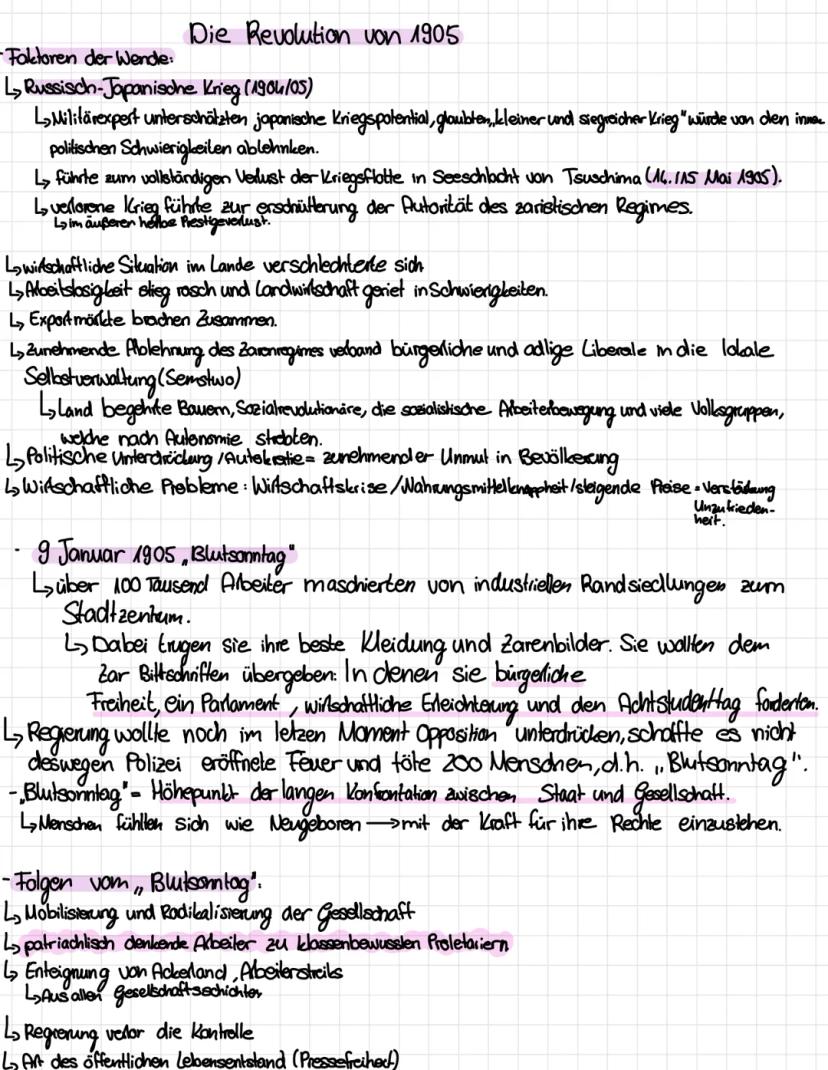 Die Revolution von 1905
- Faktoren der Wende:
↳ Russisch-Japanische Krieg (1904/05)
↳ Militärexpert unterschätzten japonische Kriegspotential, glaubten „kleiner und siegreicher Krieg" würde von den innen
politischen Schwierigkeiten ablehnken.
↳ führte zum vollständigen Verlust der Kriegsflotte in Seeschlacht von Tsuschima (14./15 Mai 1905).
↳ verlorene Krieg führte zur erschütterung der Autorität des zaristischen Regimes.
↳ im äußeren Prestigeverlust.
↳ wirtschaftliche Situation im Lande verschlechterte sich
↳ Arbeitslosigkeit stieg rasch und Landwirtschaft geriet in Schwierigkeiten.
↳ Exportmärkte brachen Zusammen.
↳ Zunehmende Ablehnung des Zarenregimes verband bürgerliche und adlige Liberale in die lokale
Selbstverwaltung (Semstwo)
↳ Land begehrte Bauern, Sozialrevolutionäre, die sozialistische Arbeiterbewegung und viele Volksgruppen,
welche nach Autonomie strebten.
↳ Politische Unterdrückung / Autokratie = zunehmender Unmut in Bevölkerung
↳ Wirtschaftliche Probleme: Wirtschaftskrise / Nahrungsmittelknappheit / steigende Preise = Verstärkung
Unzufrieden-
heit.
- 9 Januar 1905 „Blutsonntag"
↳ über 100 Tausend Arbeiter maschierten von industriellen Randsiedlungen zum
Stadtzentrum.
↳ Dabei trugen sie ihre beste Kleidung und Zarenbilder. Sie wollten dem
Zar Bittschriften übergeben: In denen sie bürgerliche
Freiheit, ein Parlament, wirtschaftliche Erleichterung und den Achtstudenttag forderten.
↳ Regierung wollte noch im letzen Moment Opposition unterdrücken, schaffte es nicht
deswegen Polizei eröffnete Feuer und töte 200 Menschen, d.h. „Blutsonntag".
- „Blutsonntag" = Höhepunkt der langen Konfrontation zwischen Staat und Gesellschaft.
↳ Menschen fühlten sich wie Neugeboren → mit der Kraft für ihre Rechte einzustehen.
- Folgen vom „Blutsonntag":
↳ Mobilisierung und Radikalisierung der Gesellschaft
↳ patriachlisch denkende Arbeiter zu klassenbewussten Proletariern
↳ Enteignung von Ackerland, Arbeiterstreiks
↳ Aus allen Gesellschaftsschichten
↳ Regierung verlor die Kontrolle
↳ Art des öffentlichen Lebensentstand (Pressefreiheit)